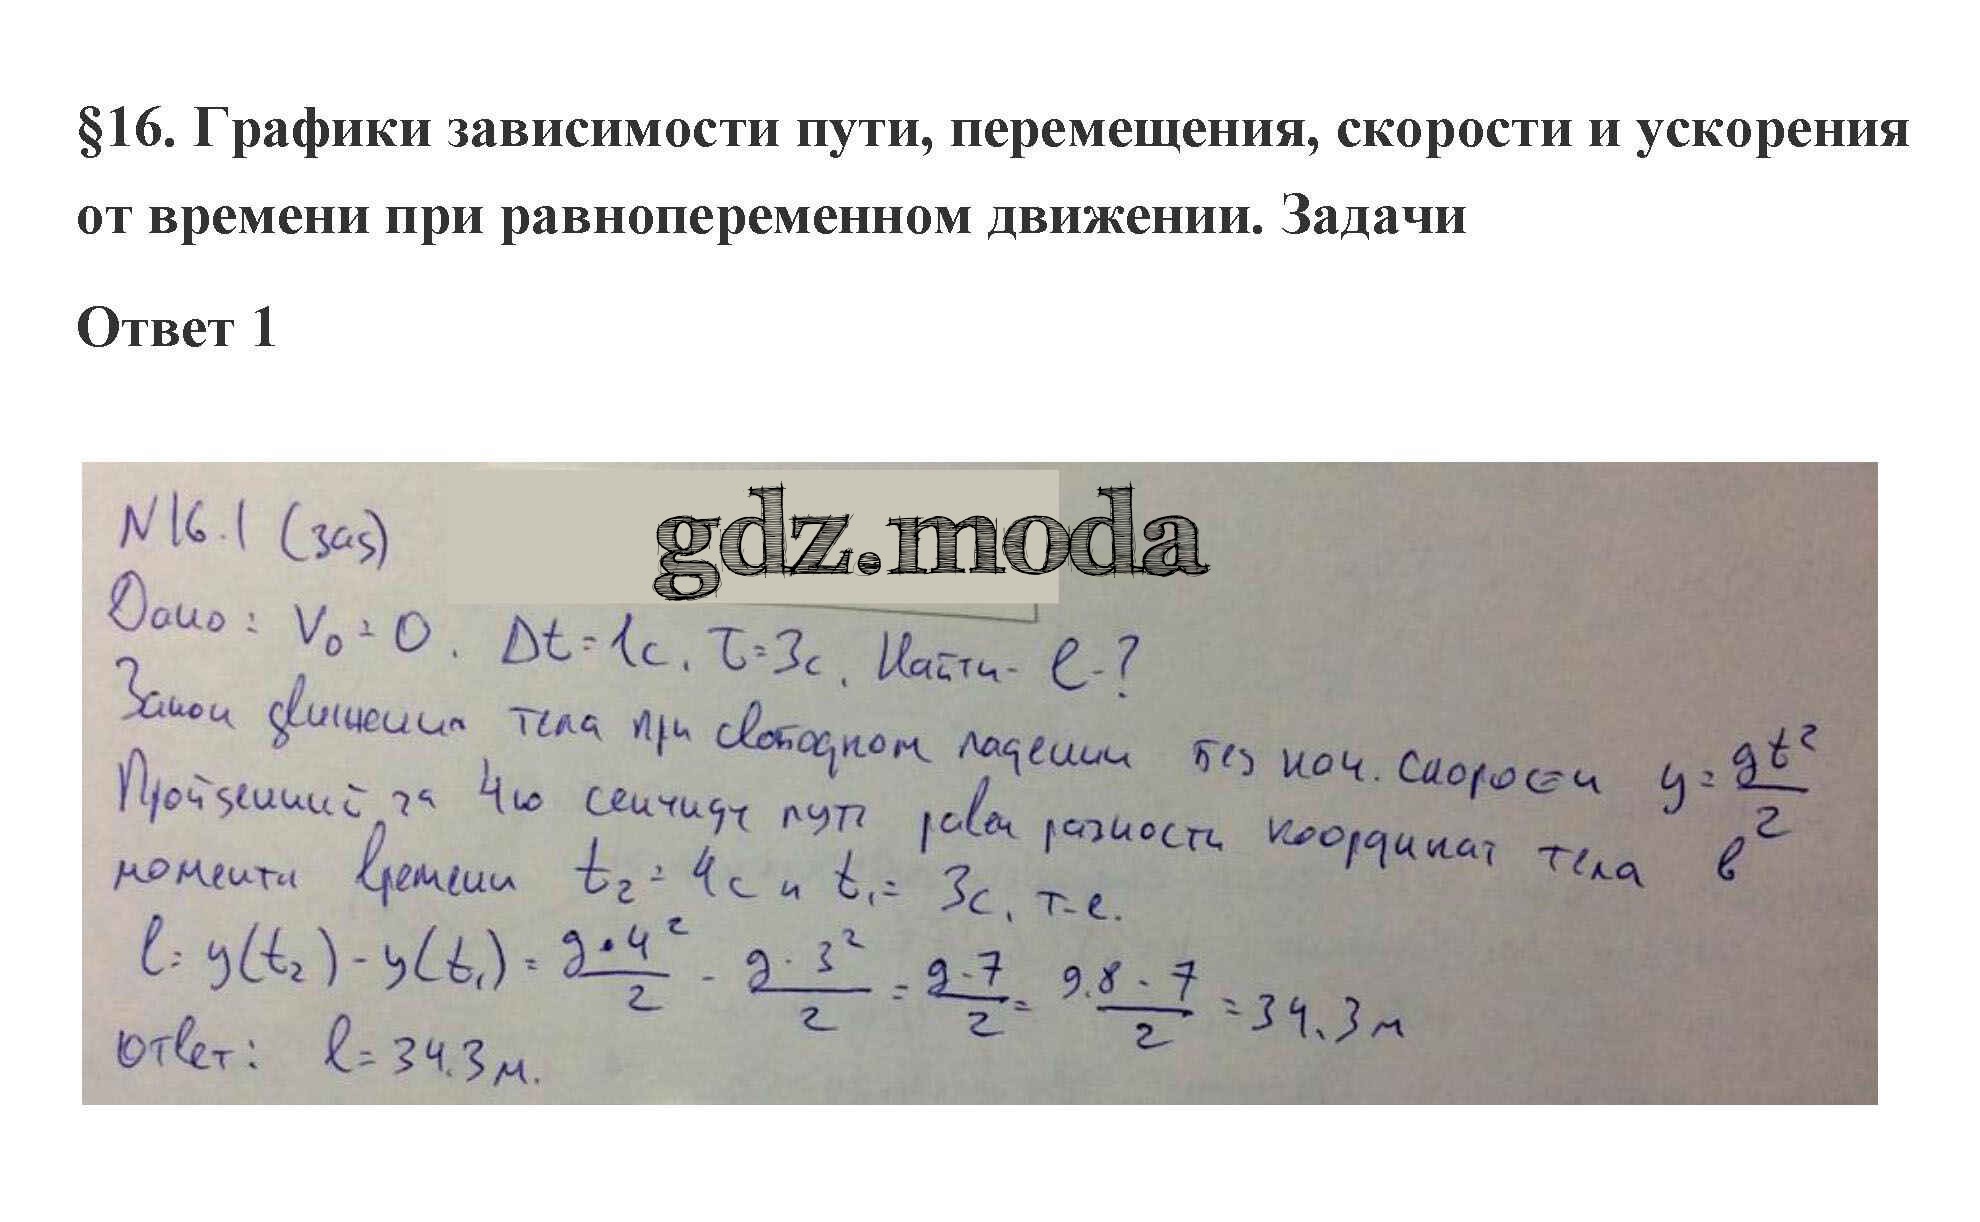 §16. Графики зависимости пути, перемещения, скорости и ускорения
от времени при равнопеременном движении. Задачи
Ответ 1
gdz.moda
N16.1 (зад)
Дано: V₀=0. Δt=1с. τ=3с. Найти- l-?
Закон движения тела при свободном падении без нач. скорости y = gt²/2
Пройденный за 4ю секунду путь равен разности координат тела в
моменты времени t₂=4с и t₁=3с, т.е.
l = y(t₂) - y(t₁) = g·4²/2 - g·3²/2 = g·7/2 = 9.8·7/2 = 34.3 м
Ответ: l=34.3 м.